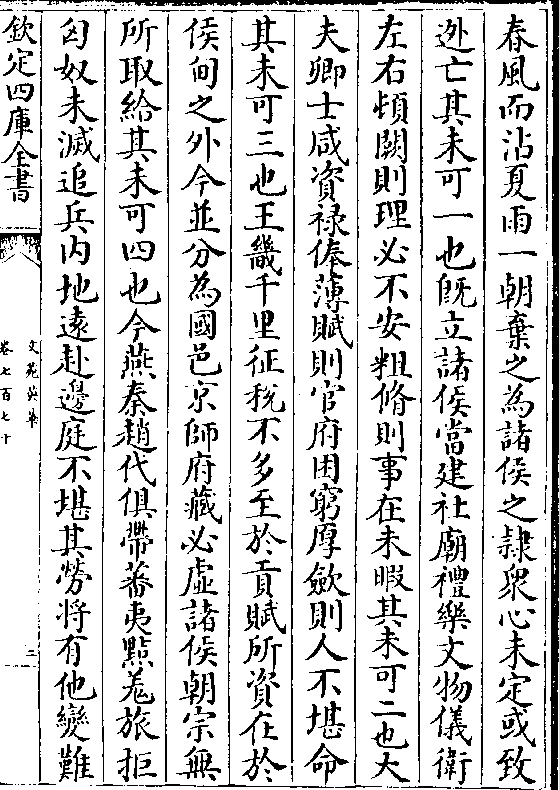 春風而沾夏雨一朝棄之為諸侯之隷衆心未定或致
迯亡其未可一也旣立諸侯當建社廟禮樂文物儀衛
左右頓闕則理必不安粗脩則事在未暇其未可二也大
夫卿士咸資禄俸薄賦則官府困窮厚斂則人不堪命
其未可三也王畿千里征稅不多至於貢賦所資在於
侯甸之外今並分為國邑京師府藏必虛諸侯朝宗無
所取給其未可四也今燕秦趙代俱帶蕃夷黠羌旅拒
匈奴未滅追兵内地逺赴邊庭不堪其勞将有他變難
欽定四庫全書
文苑英華
卷七百七十
三